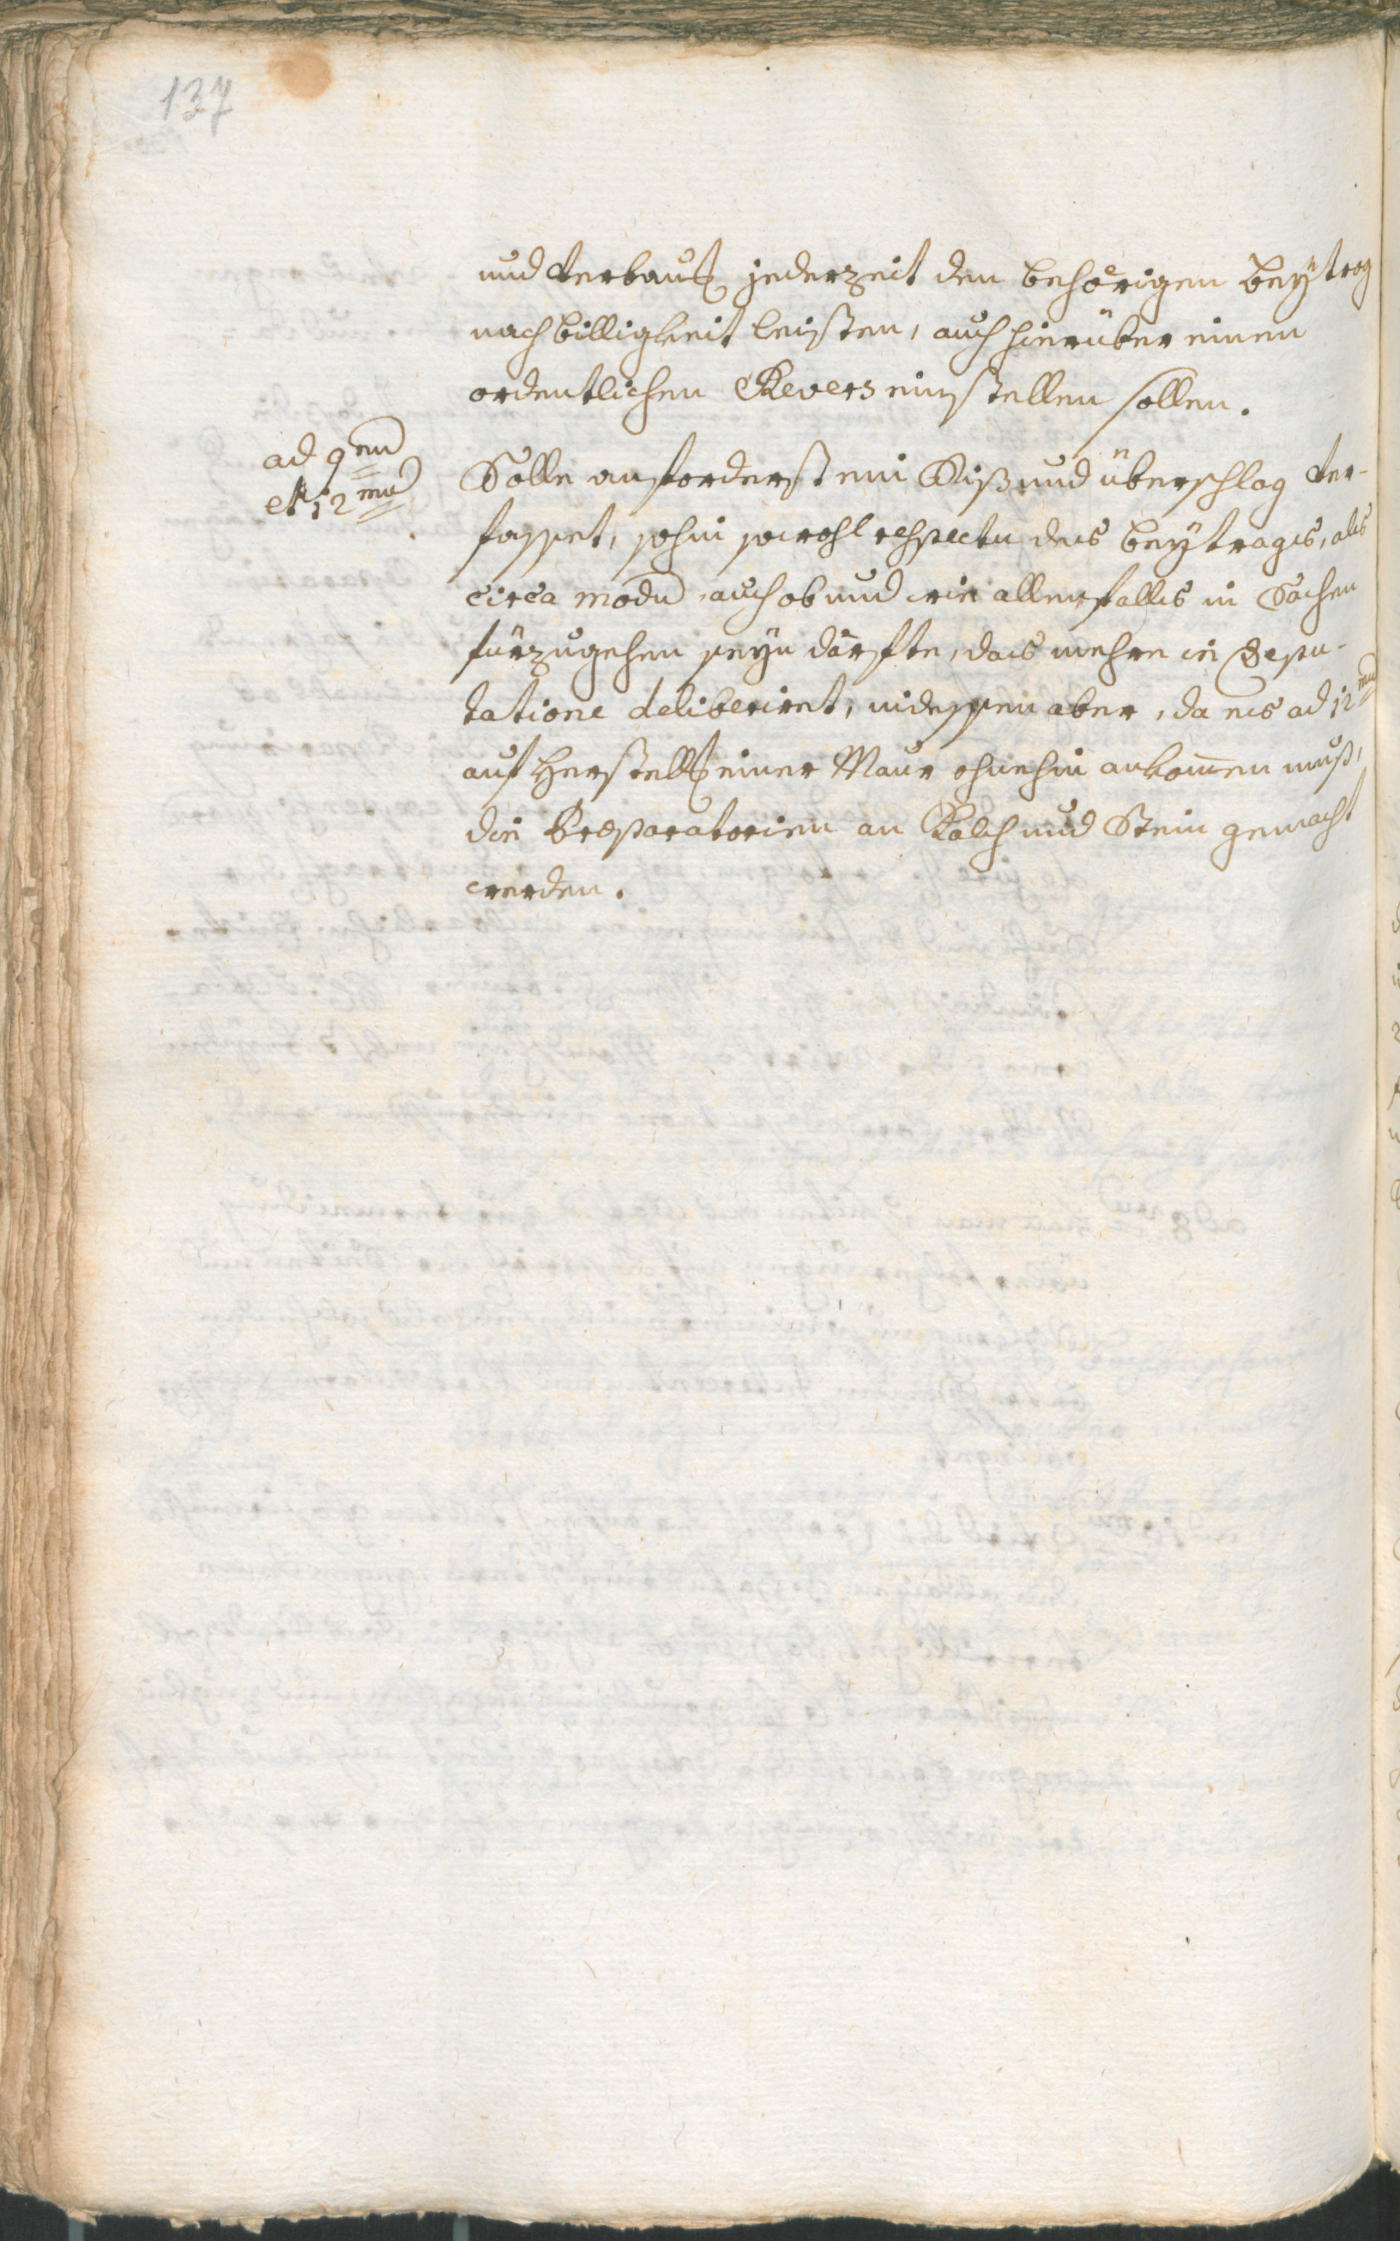 137
und Verbauß jederzeit den behörigen Beÿtrag
nach billigkeit leisten, auch hierüber einen
ordentlichen Revers einstellen sollen.
ad 9num
et 12mum
Solle anforderst ein Riß und überschlag ver-
fasset, sohin sowohl respectu des beÿtrages, als
circa modum, auch ob und wie allenfalls in Sachen
fürzugehen seÿn dörfte, das mehre in Depu-
tatione deliberiret, indessen aber, da es ad 12mum
auf Herstell[un]g einer Maur ohnehin ankomen muß,
die Præparatorien an Kalch und Stein gemacht
werden.